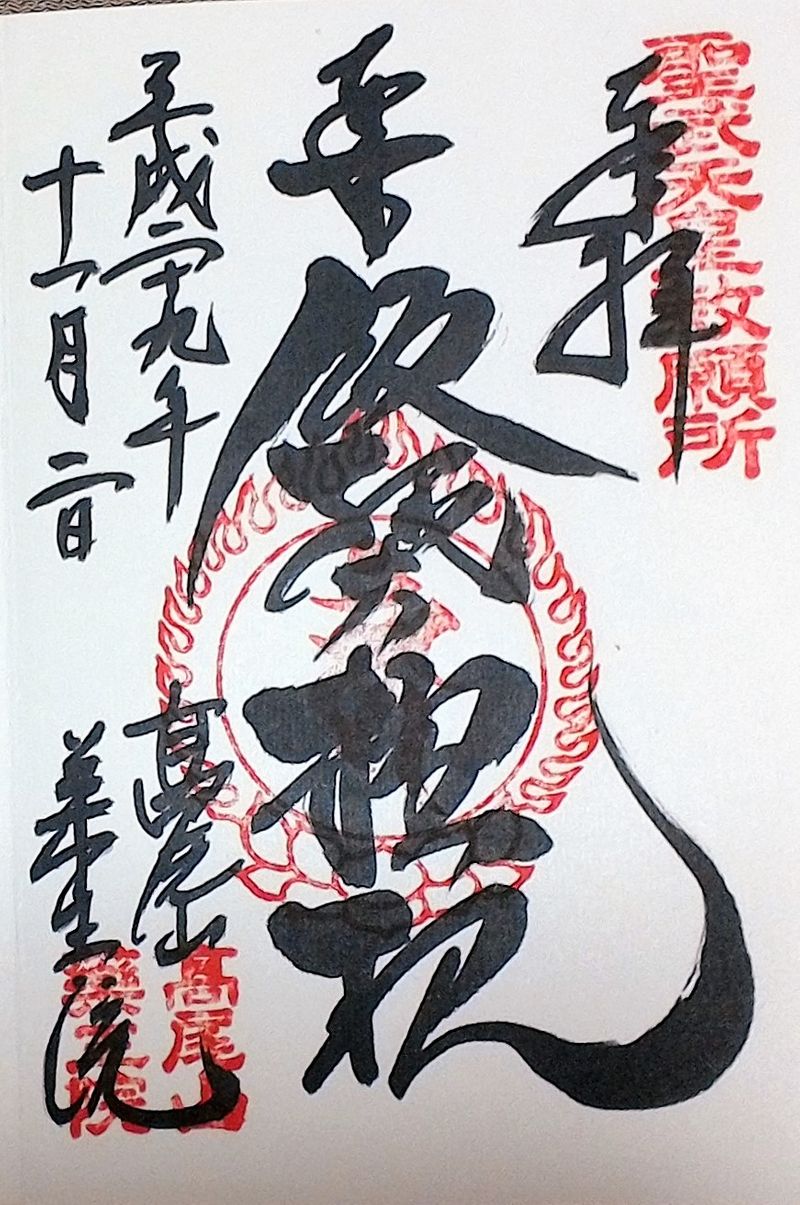 聖武天皇勅願所
奉拝
飯縄大権現
平成二十九年
十一月二日
高尾山
薬王院
高尾山
薬王院